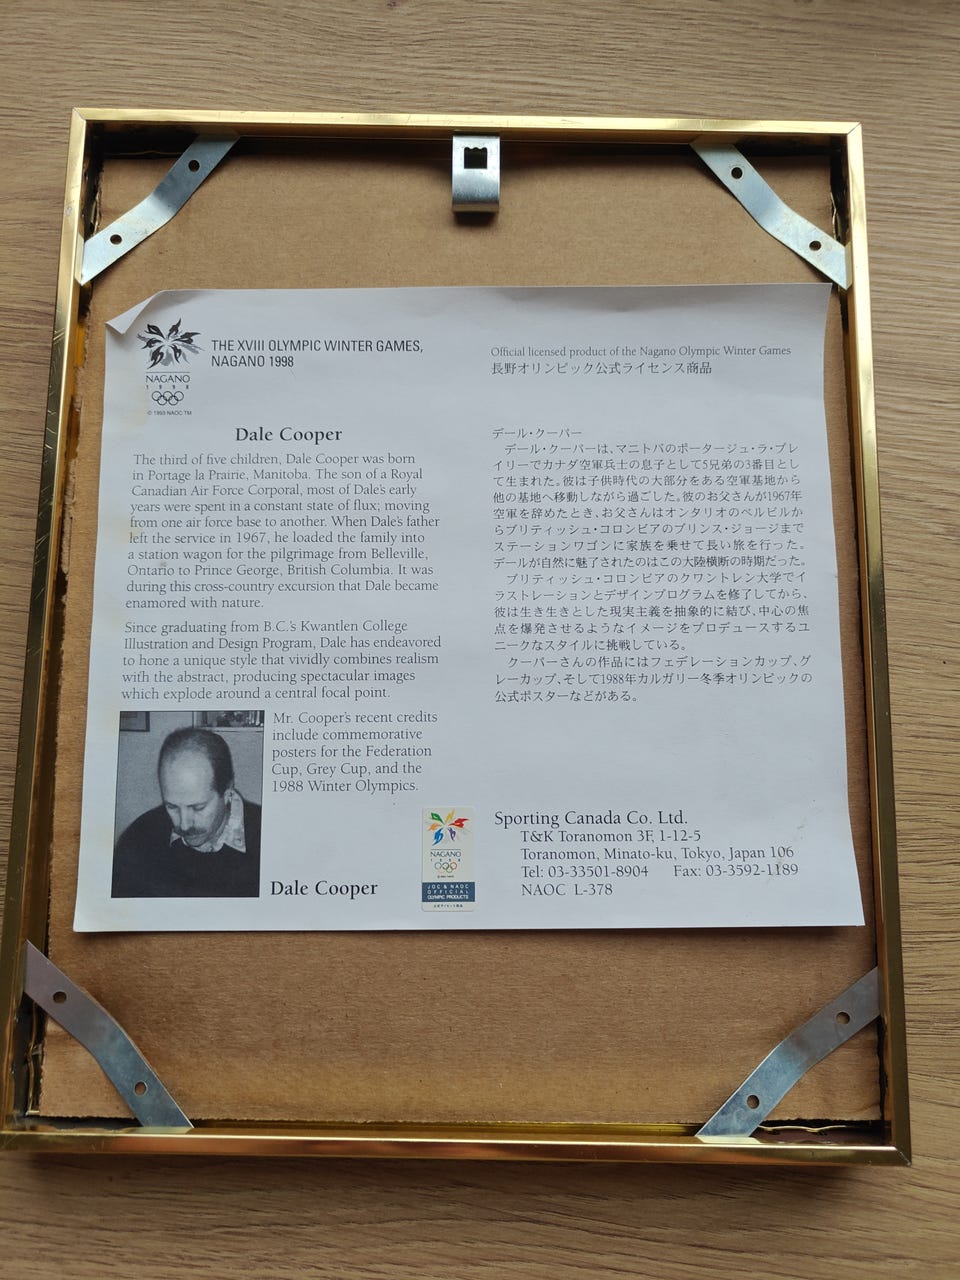 THE XVIII OLYMPIC WINTER GAMES,
NAGANO 1998
NAGANO
1 9 9 8
© 1993 NAOC TM
Dale Cooper
The third of five children, Dale Cooper was born
in Portage la Prairie, Manitoba. The son of a Royal
Canadian Air Force Corporal, most of Dale's early
years were spent in a constant state of flux; moving
from one air force base to another. When Dale's father
left the service in 1967, he loaded the family into
a station wagon for the pilgrimage from Belleville,
Ontario to Prince George, British Columbia. It was
during this cross-country excursion that Dale became
enamored with nature.
Since graduating from B.C.'s Kwantlen College
Illustration and Design Program, Dale has endeavored
to hone a unique style that vividly combines realism
with the abstract, producing spectacular images
which explode around a central focal point.
Mr. Cooper's recent credits
include commemorative
posters for the Federation
Cup, Grey Cup, and the
1988 Winter Olympics.
Dale Cooper
Official licensed product of the Nagano Olympic Winter Games
長野オリンピック公式ライセンス商品
デール・クーパー
デール・クーパーは、マニトバのポータージュ・ラ・プレ
イリーでカナダ空軍兵士の息子として5兄弟の3番目とし
て生まれた。彼は子供時代の大部分をある空軍基地から
他の基地へ移動しながら過ごした。彼のお父さんが1967年
空軍を辞めたとき、お父さんはオンタリオのベルビルか
らブリティッシュ・コロンビアのプリンス・ジョージまで
ステーションワゴンに家族を乗せて長い旅を行った。
デールが自然に魅了されたのはこの大陸横断の時期だった。
ブリティッシュ・コロンビアのクワントレン大学でイ
ラストレーションとデザインプログラムを修了してから、
彼は生き生きとした現実主義を抽象的に結び、中心の焦
点を爆発させるようなイメージをプロデュースするユ
ニークなスタイルに挑戦している。
クーパーさんの作品にはフェデレーションカップ、グ
レーカップ、そして1988年カルガリー冬季オリンピックの
公式ポスターなどがある。
NAGANO
1 9 9 8
JOC & NAOC
OFFICIAL
OLYMPIC PRODUCTS
公式ライセンス商品
Sporting Canada Co. Ltd.
T&K Toranomon 3F, 1-12-5
Toranomon, Minato-ku, Tokyo, Japan 106
Tel: 03-33501-8904 Fax: 03-3592-1189
NAOC L-378